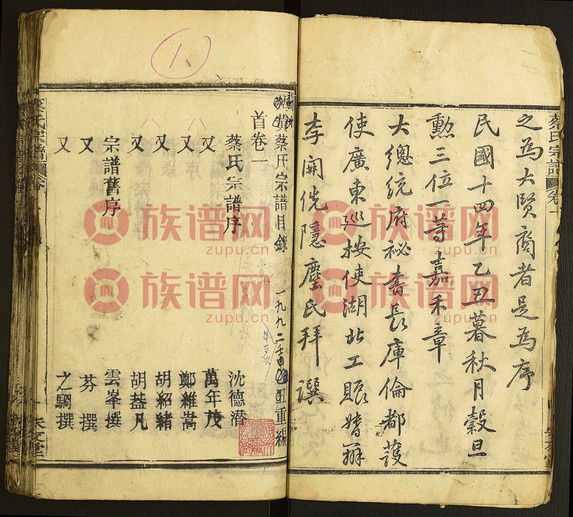 之為大賢裔者是為序
民國十四年乙丑暮秋月穀旦
勳三位一等嘉禾章
大總統府祕書長庫倫都護
使廣東巡按使湖北工賑督辦
李開侁隱塵氏拜譔
蔡氏宗譜 卷一
蔡氏宗譜目錄
一九九二
重編
首卷一
蔡氏宗譜序 沈德潛
又 萬年茂
又 鄭維嵩
又 胡紹緒
又 胡蓋凡
宗譜舊序 雲峯撰
又 芬撰
又 之驌撰
族谱网
zupu.cn
族谱网
zupu.cn
族谱网
zupu.cn
族谱网
zupu.cn